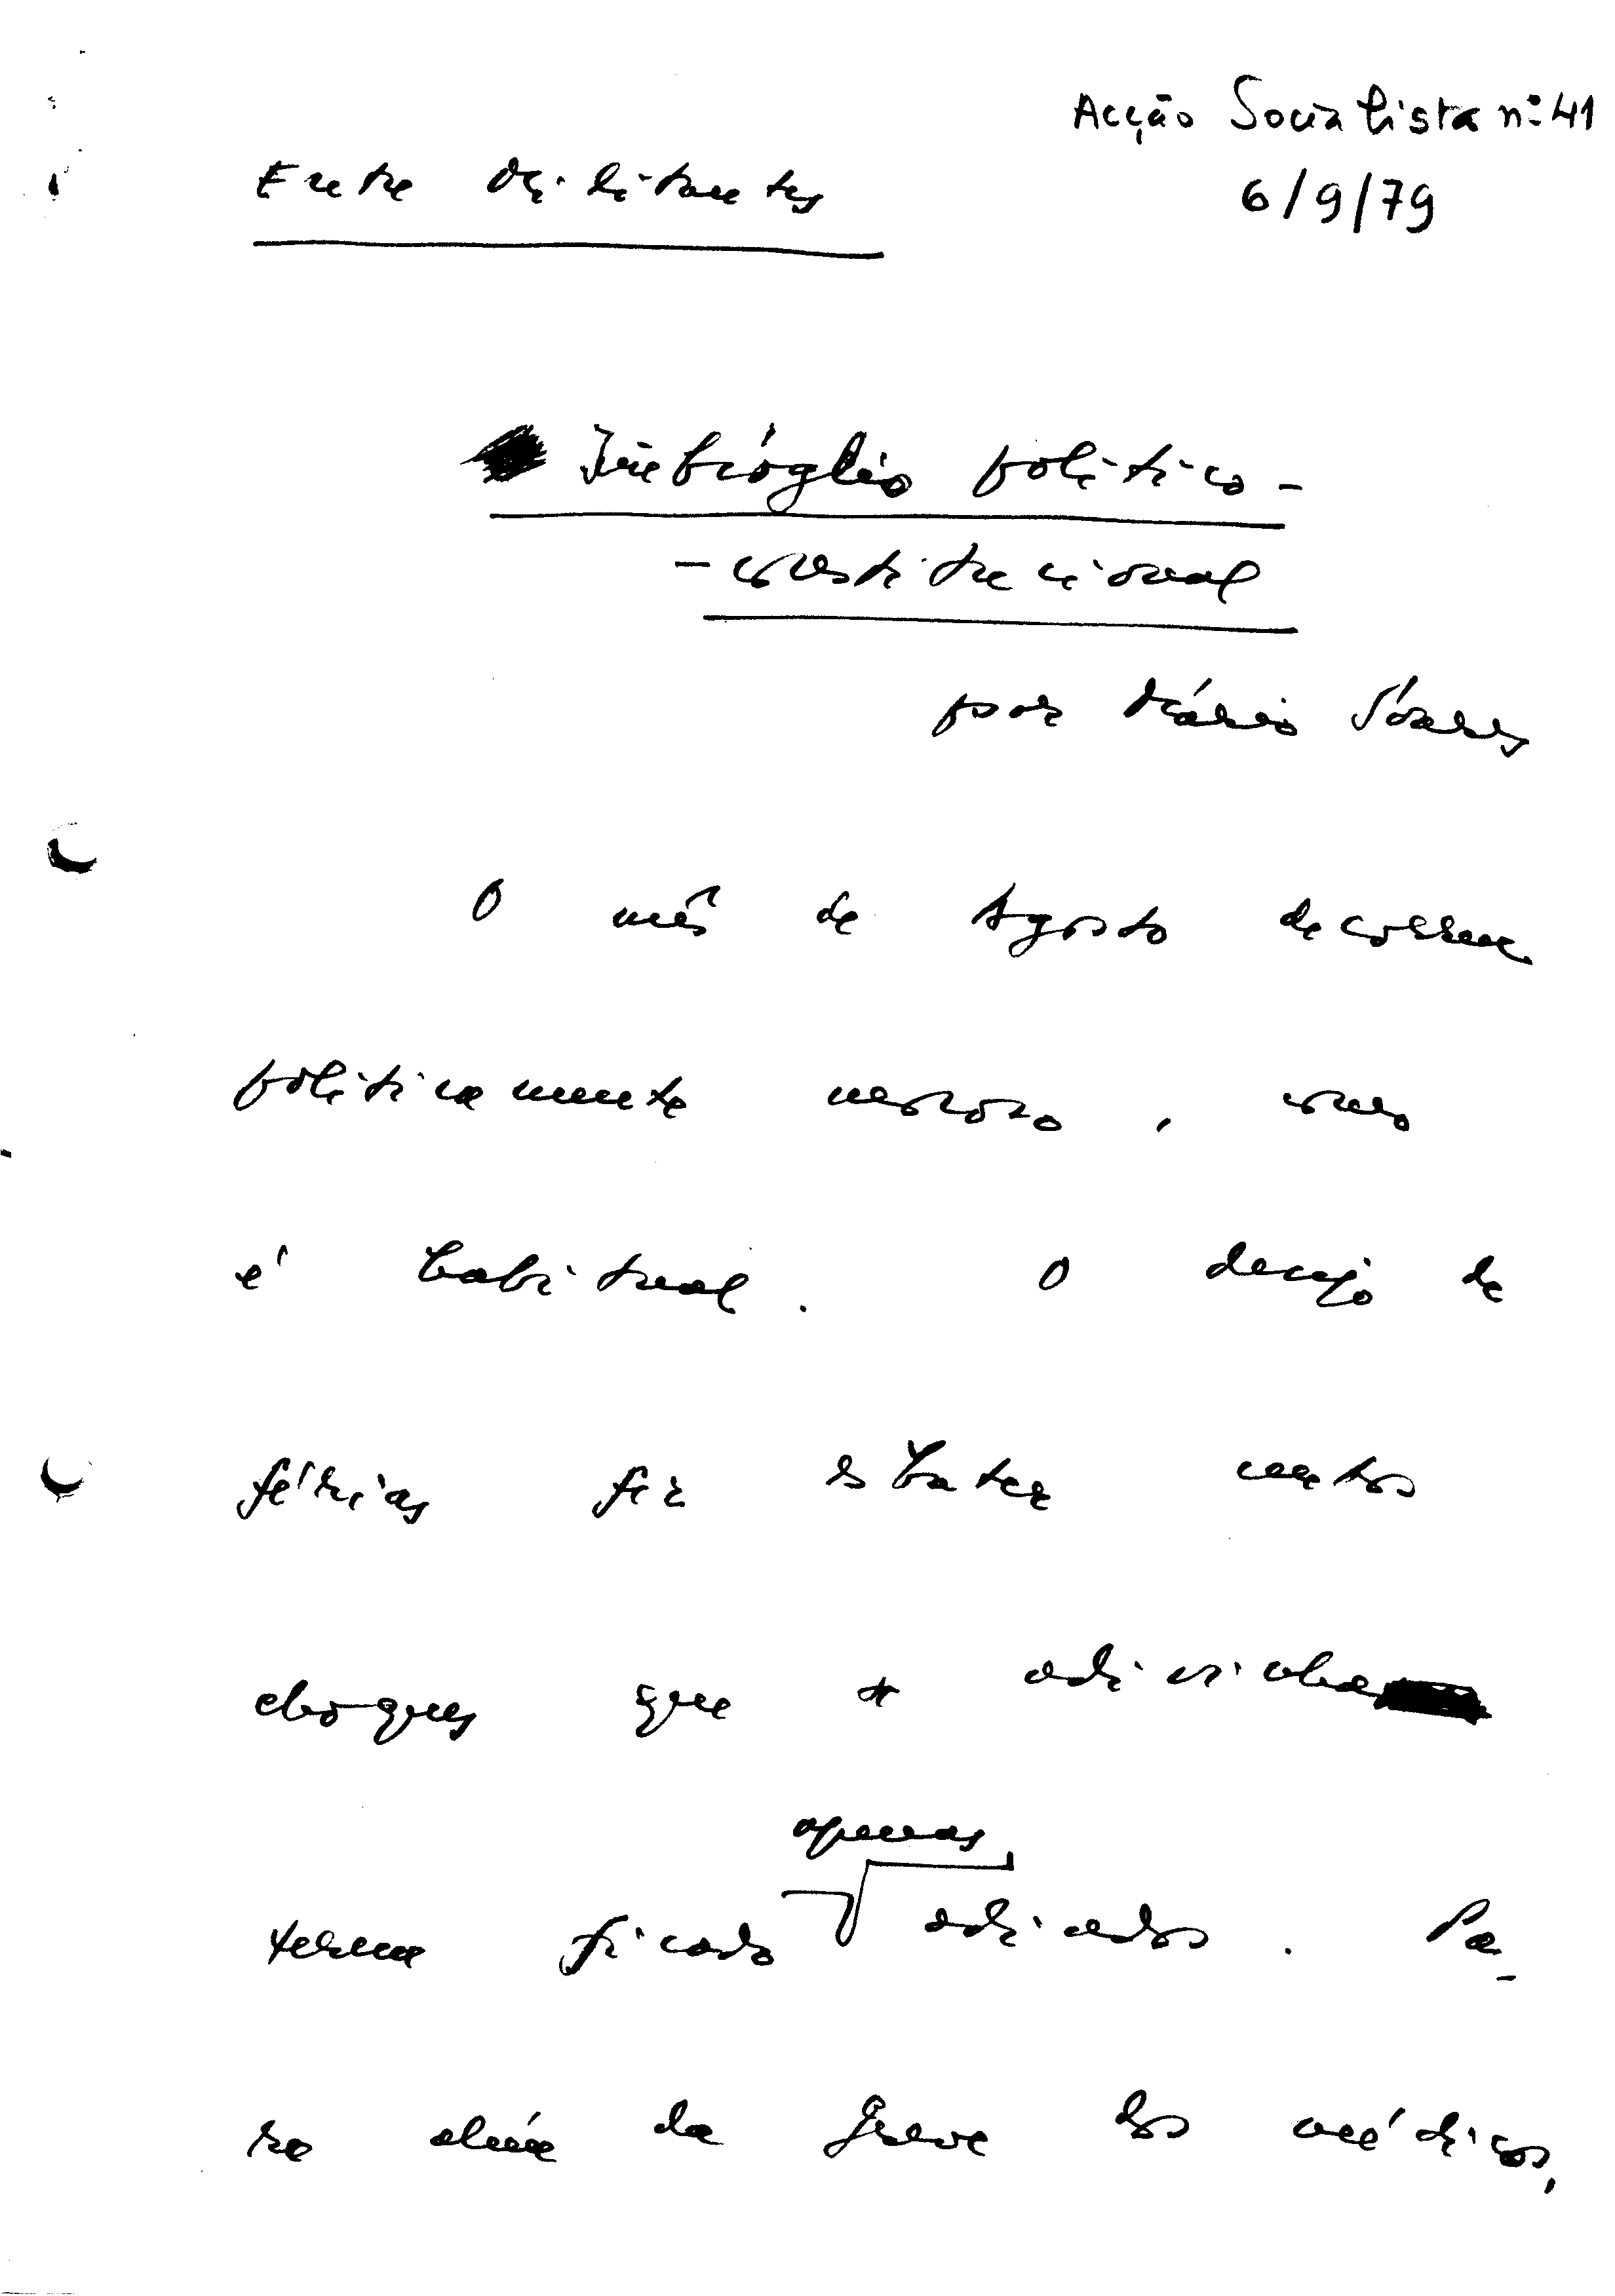 Acção Socialista nº 41
6/9/79
Entre Militantes
Imbróglio político-
-constitucional
por Mário Soares
O mês de Agosto decorreu
politicamente morno, como
é habitual. O desejo de
férias fez esbater certos
choques que se adivinha
terem ficado apenas adiados. Pa-
ra além da greve dos médicos,